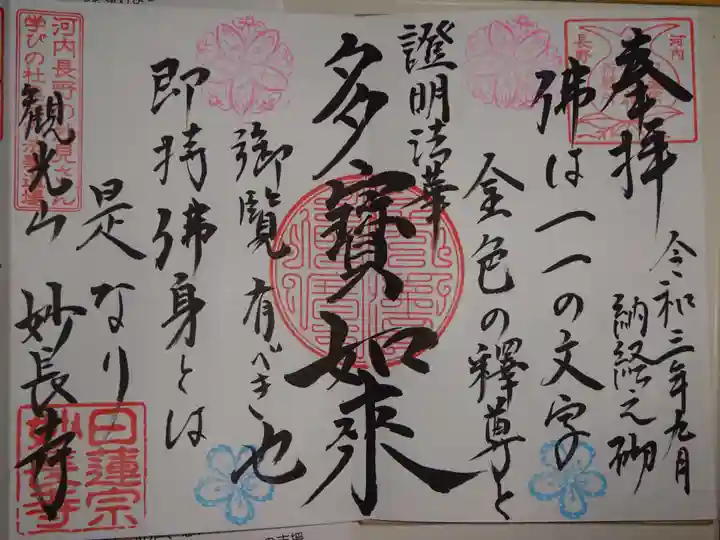 奉拝
河内
長野
令和三年九月
納経之砌
佛は一一の文字
金色の釋尊と
證明法華
多寶如来
御覧有べき也
即持佛身とは
是なり
河内長野の
学びの杜
観光山 妙長寺
日蓮宗
妙長寺